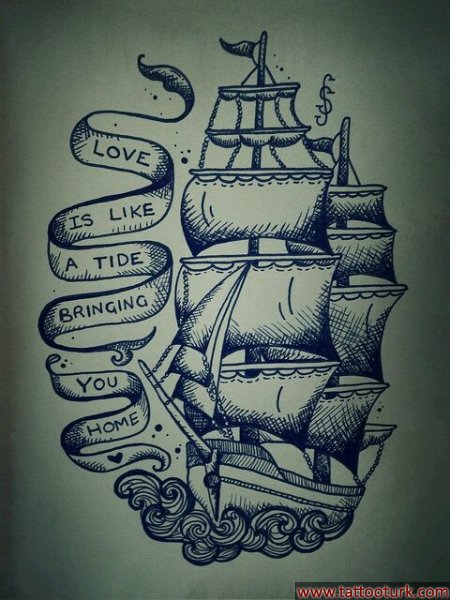 LOVE
IS LIKE
A TIDE
BRINGING
YOU
HOME
www.tattooturk.com